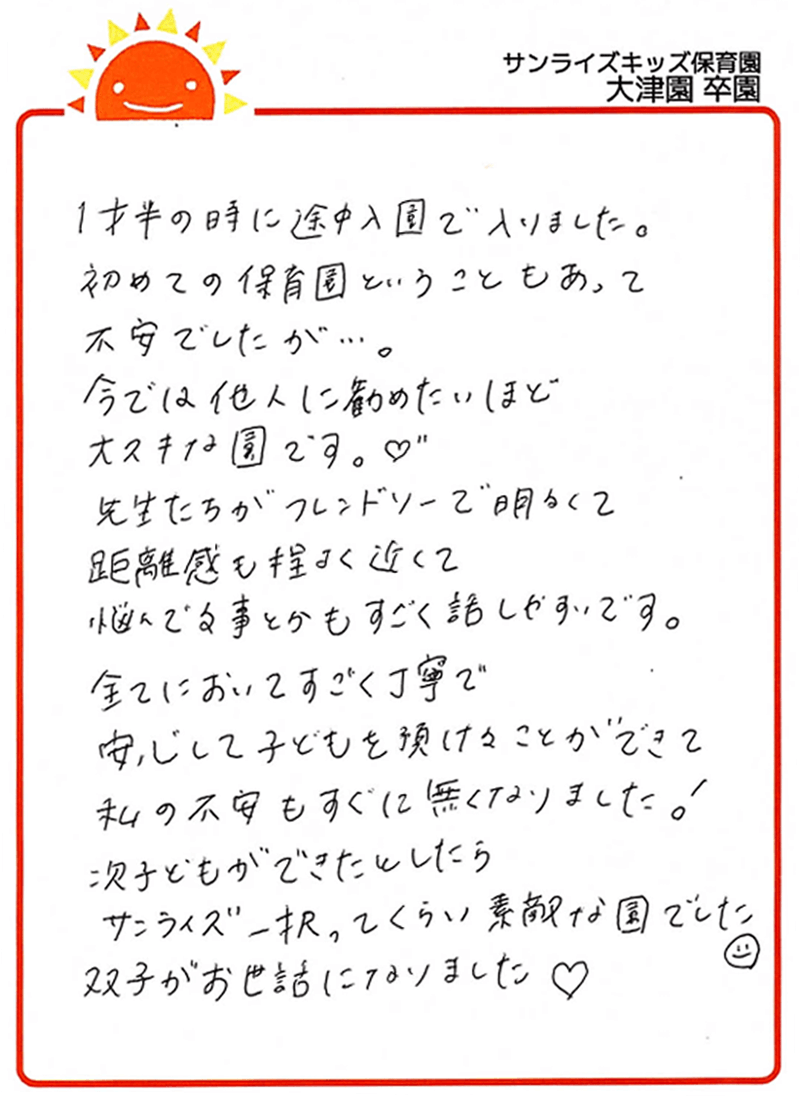 サンライズキッズ保育園
大津園 卒園
1才半の時に途中入園で入りました。
初めての保育園ということもあって
不安でしたが…。
今では他人に勧めたいほど
大スキな園です。♡
先生たちがフレンドリーで明るくて
距離感も程よく近くて
悩んでる事とかもすごく話しやすいです。
全てにおいてすごく丁寧で
安心して子どもを預けることができて
私の不安もすぐに無くなりました!
次子どもができたとしたら
サンライズ一択ってくらい素敵な園でした
双子がお世話になりました♡